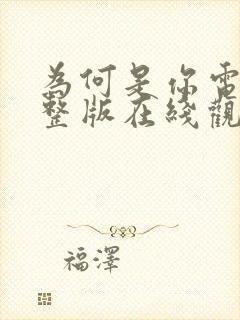 為何是你電
整版在綫觀
福澤